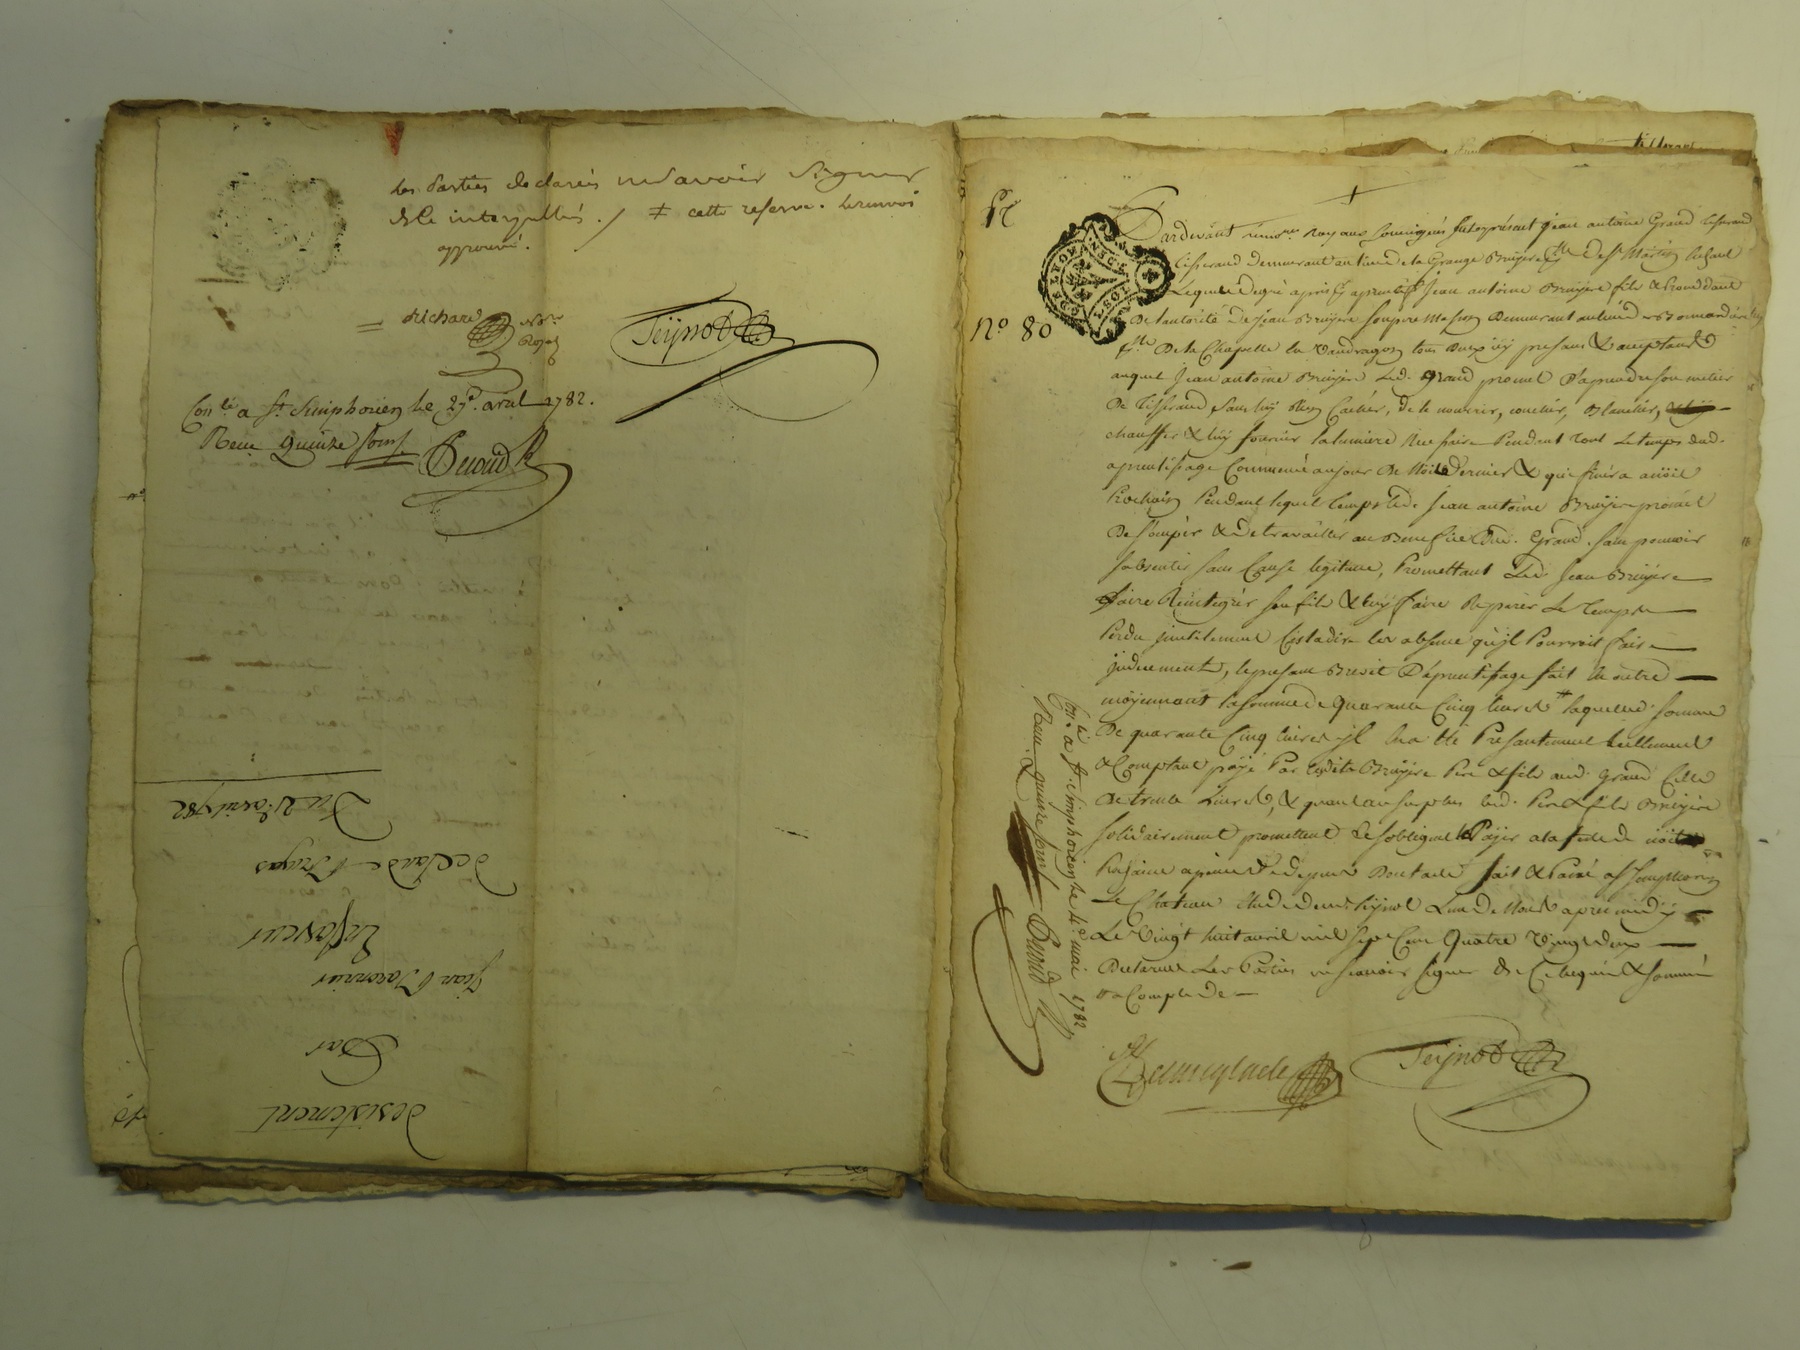 les Parties declarées ne savoir signer
de ce interpellées. / ≠ cette reserve. le renvoi
approuvé.
= Richard Nore
Royal
Teÿnod
Conlé a St. Simphorien le 27e. avril 1782.
Recu quinze sous.
Du 21 avril 1782
de Claude
En faveur
Jean
Par
desistement
N.o 80
GEN. DE LYON
Pardevant Nores. Royaux soussignés fut présent Jean antoine Grand tisserand
tisserand demeurant au lieu de la Grange Bruyere psse. de St. Martin
Lequel de gré a pris en aprentif Jean antoine Bruyere fils & procedant
De l'autorité de Jean Bruyere son pere Mason demeurant au lieu de
psse. De la Chapelle en Vaudragon tous deux icy presans & acceptants
auquel Jean antoine Bruyere led. Grand promet d'aprendre son metier
De tisserand sans luy rien cacher, de le nourrir, coucher, blanchir,
chauffer & luy fournir la lumiere necessaire Pendant tout le temps dud.
aprentissage Commencé au jour de Noel dernier & qui finira a noel
Prochain Pendant lequel temps led. Jean antoine Bruyere promet
De s'ocuper & de travailler au Benefice dud. Grand. sans pouvoir
s'absenter sans Cause legitime, Promettant led. Jean Bruyere
faire Reintegrer son fils & luy faire Reparer le temps
Perdu inutilement C'est a dire les absence qu'il Pourroit faire
, le presant Brevet D'aprentissage fait En outre
moyennant la somme de quarante Cinq livres laquelle somme
De quarante Cinq livres il En a été Presantement Réellement
& Comptant payé Par lesdits Bruyere Pere & fils aud. Grand Celle
de trente livres, & quant au surplus led. Pere & fils Bruyere
solidairement promettent & s'obligent de Payer a la fete de noel
Prochaine a peine de depens Dont acte fait & Passé a St simphorien
Le Chateau Etude de me. Teÿnod L'un de Nous apres midÿ
Le vingt huit avril mil sept Cent Quatre vingt deux
Declarées Les Parties ne scavoir signer de Ce Enquis & sommé

Teÿnod
Conlé. a St. Simphorien le 4e. mai 1782
Recu quinze sous